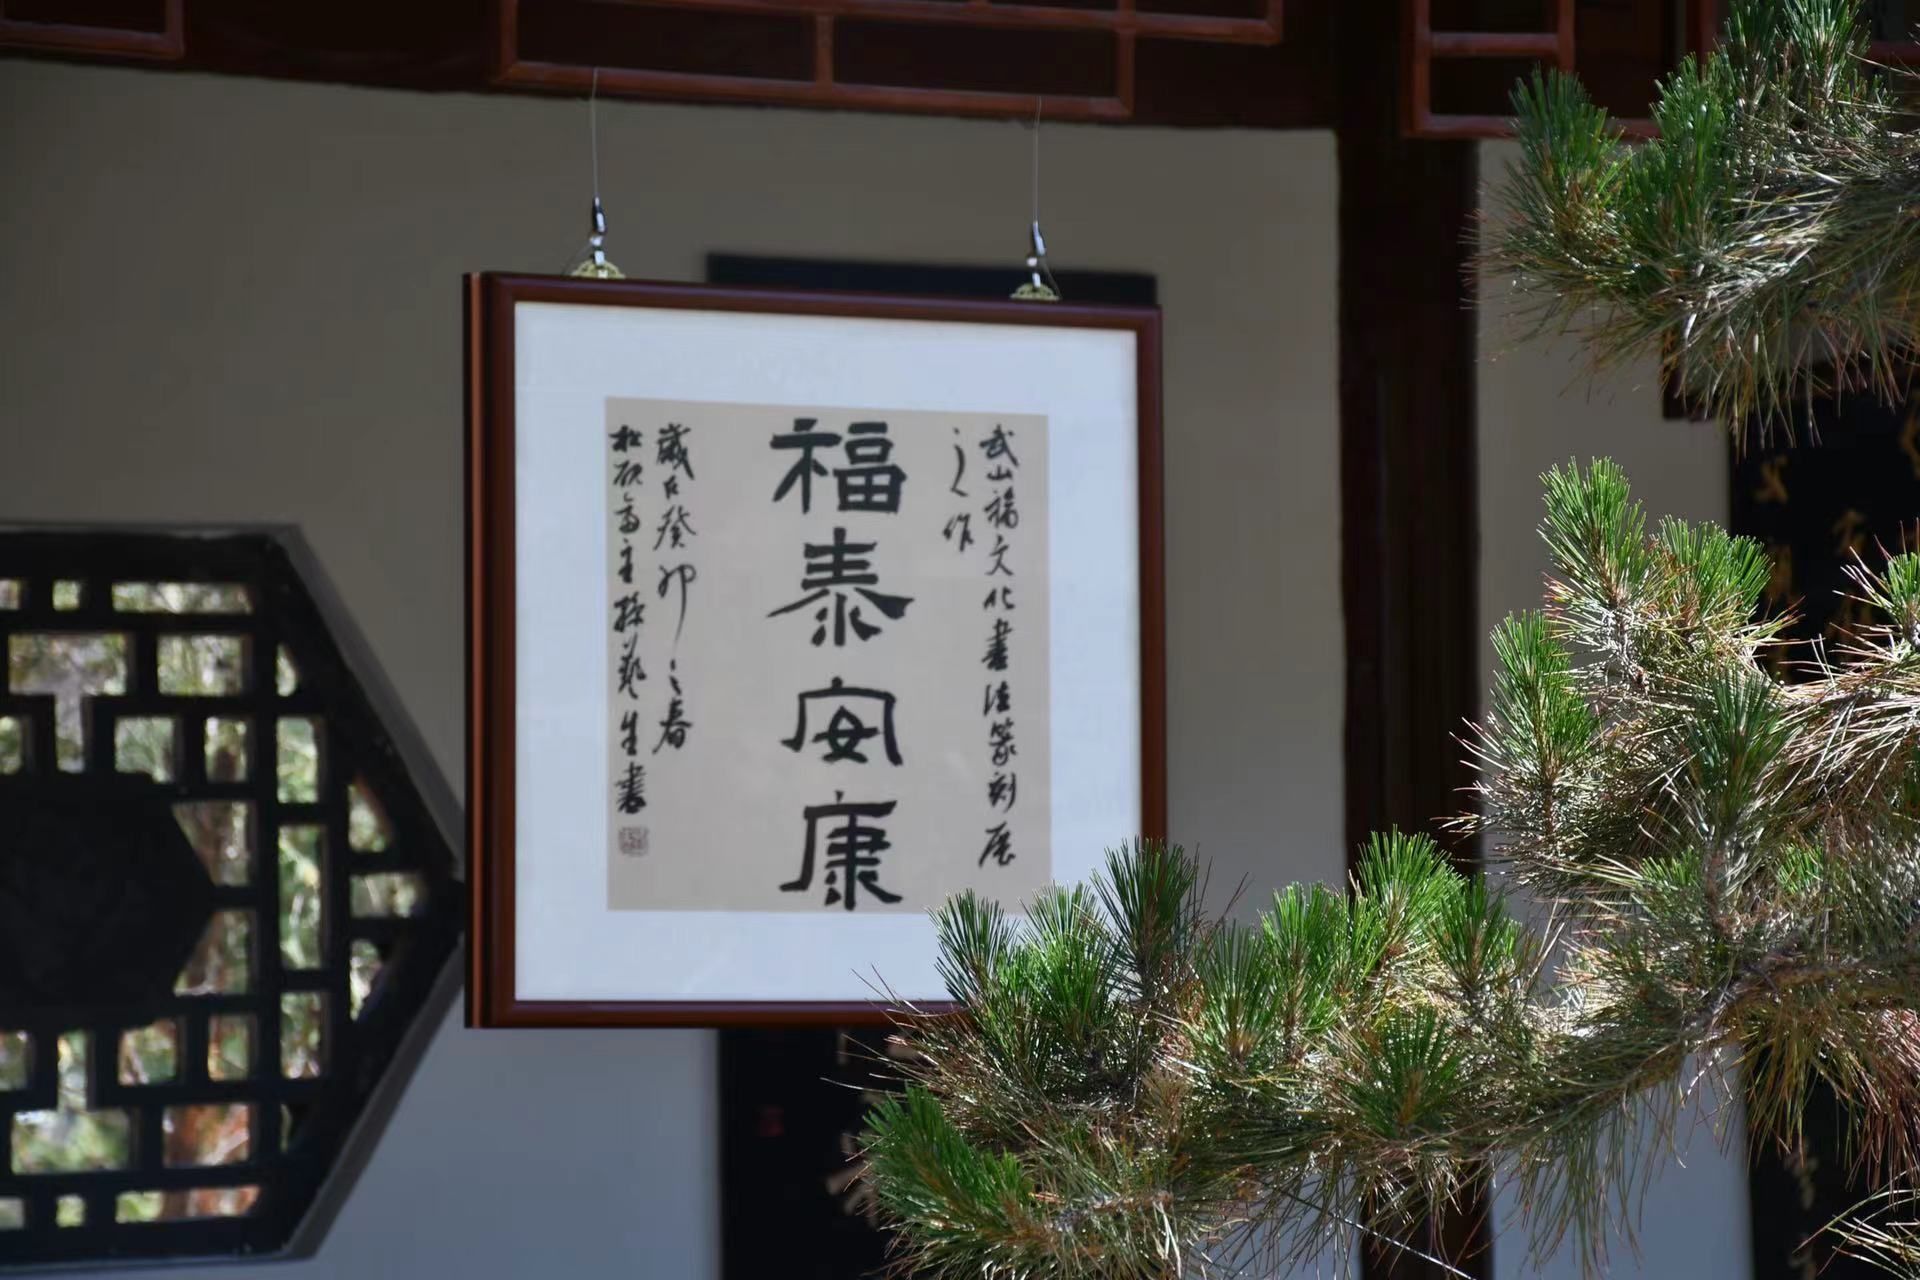 武山福文化書法篆刻展
之作
福泰安康
歲在癸卯之春
松硯齋主孫艺生書